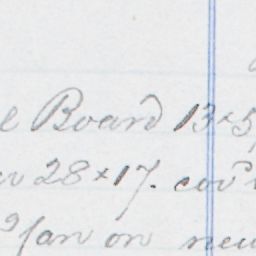 Board 13 × 5
28 × 17. cov'd
Jan on new